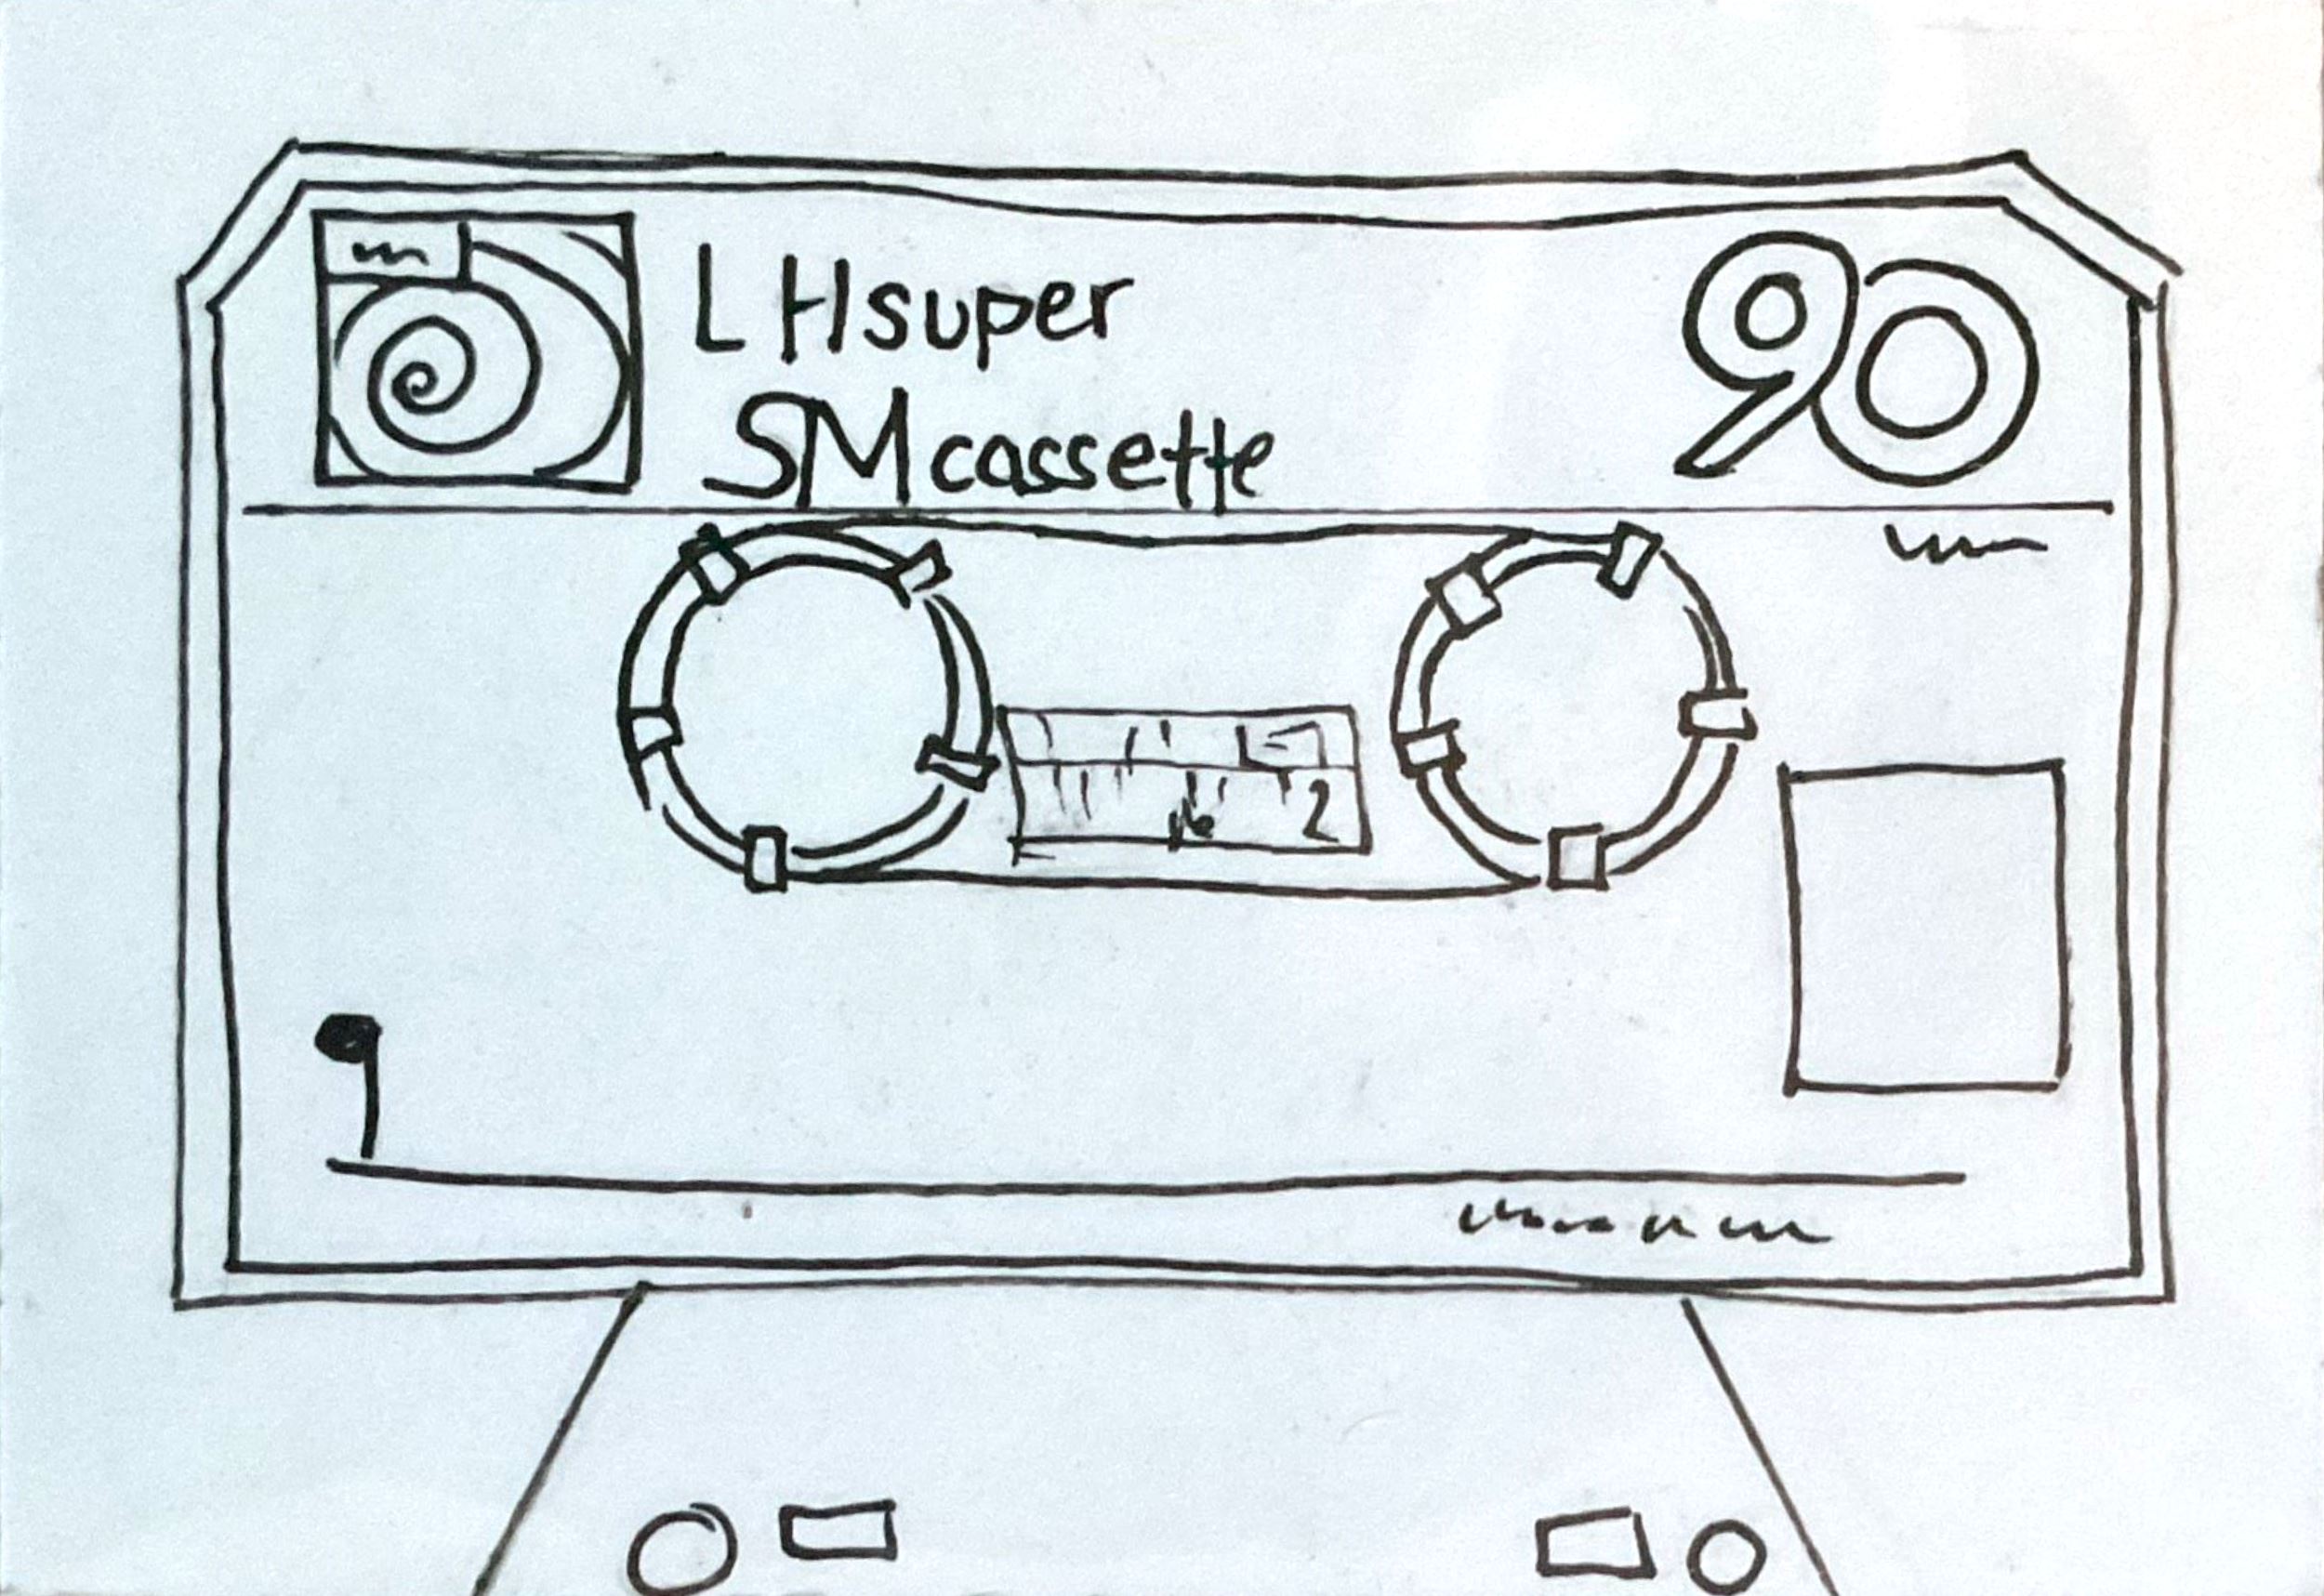 LHsuper
90
SMcassette
2